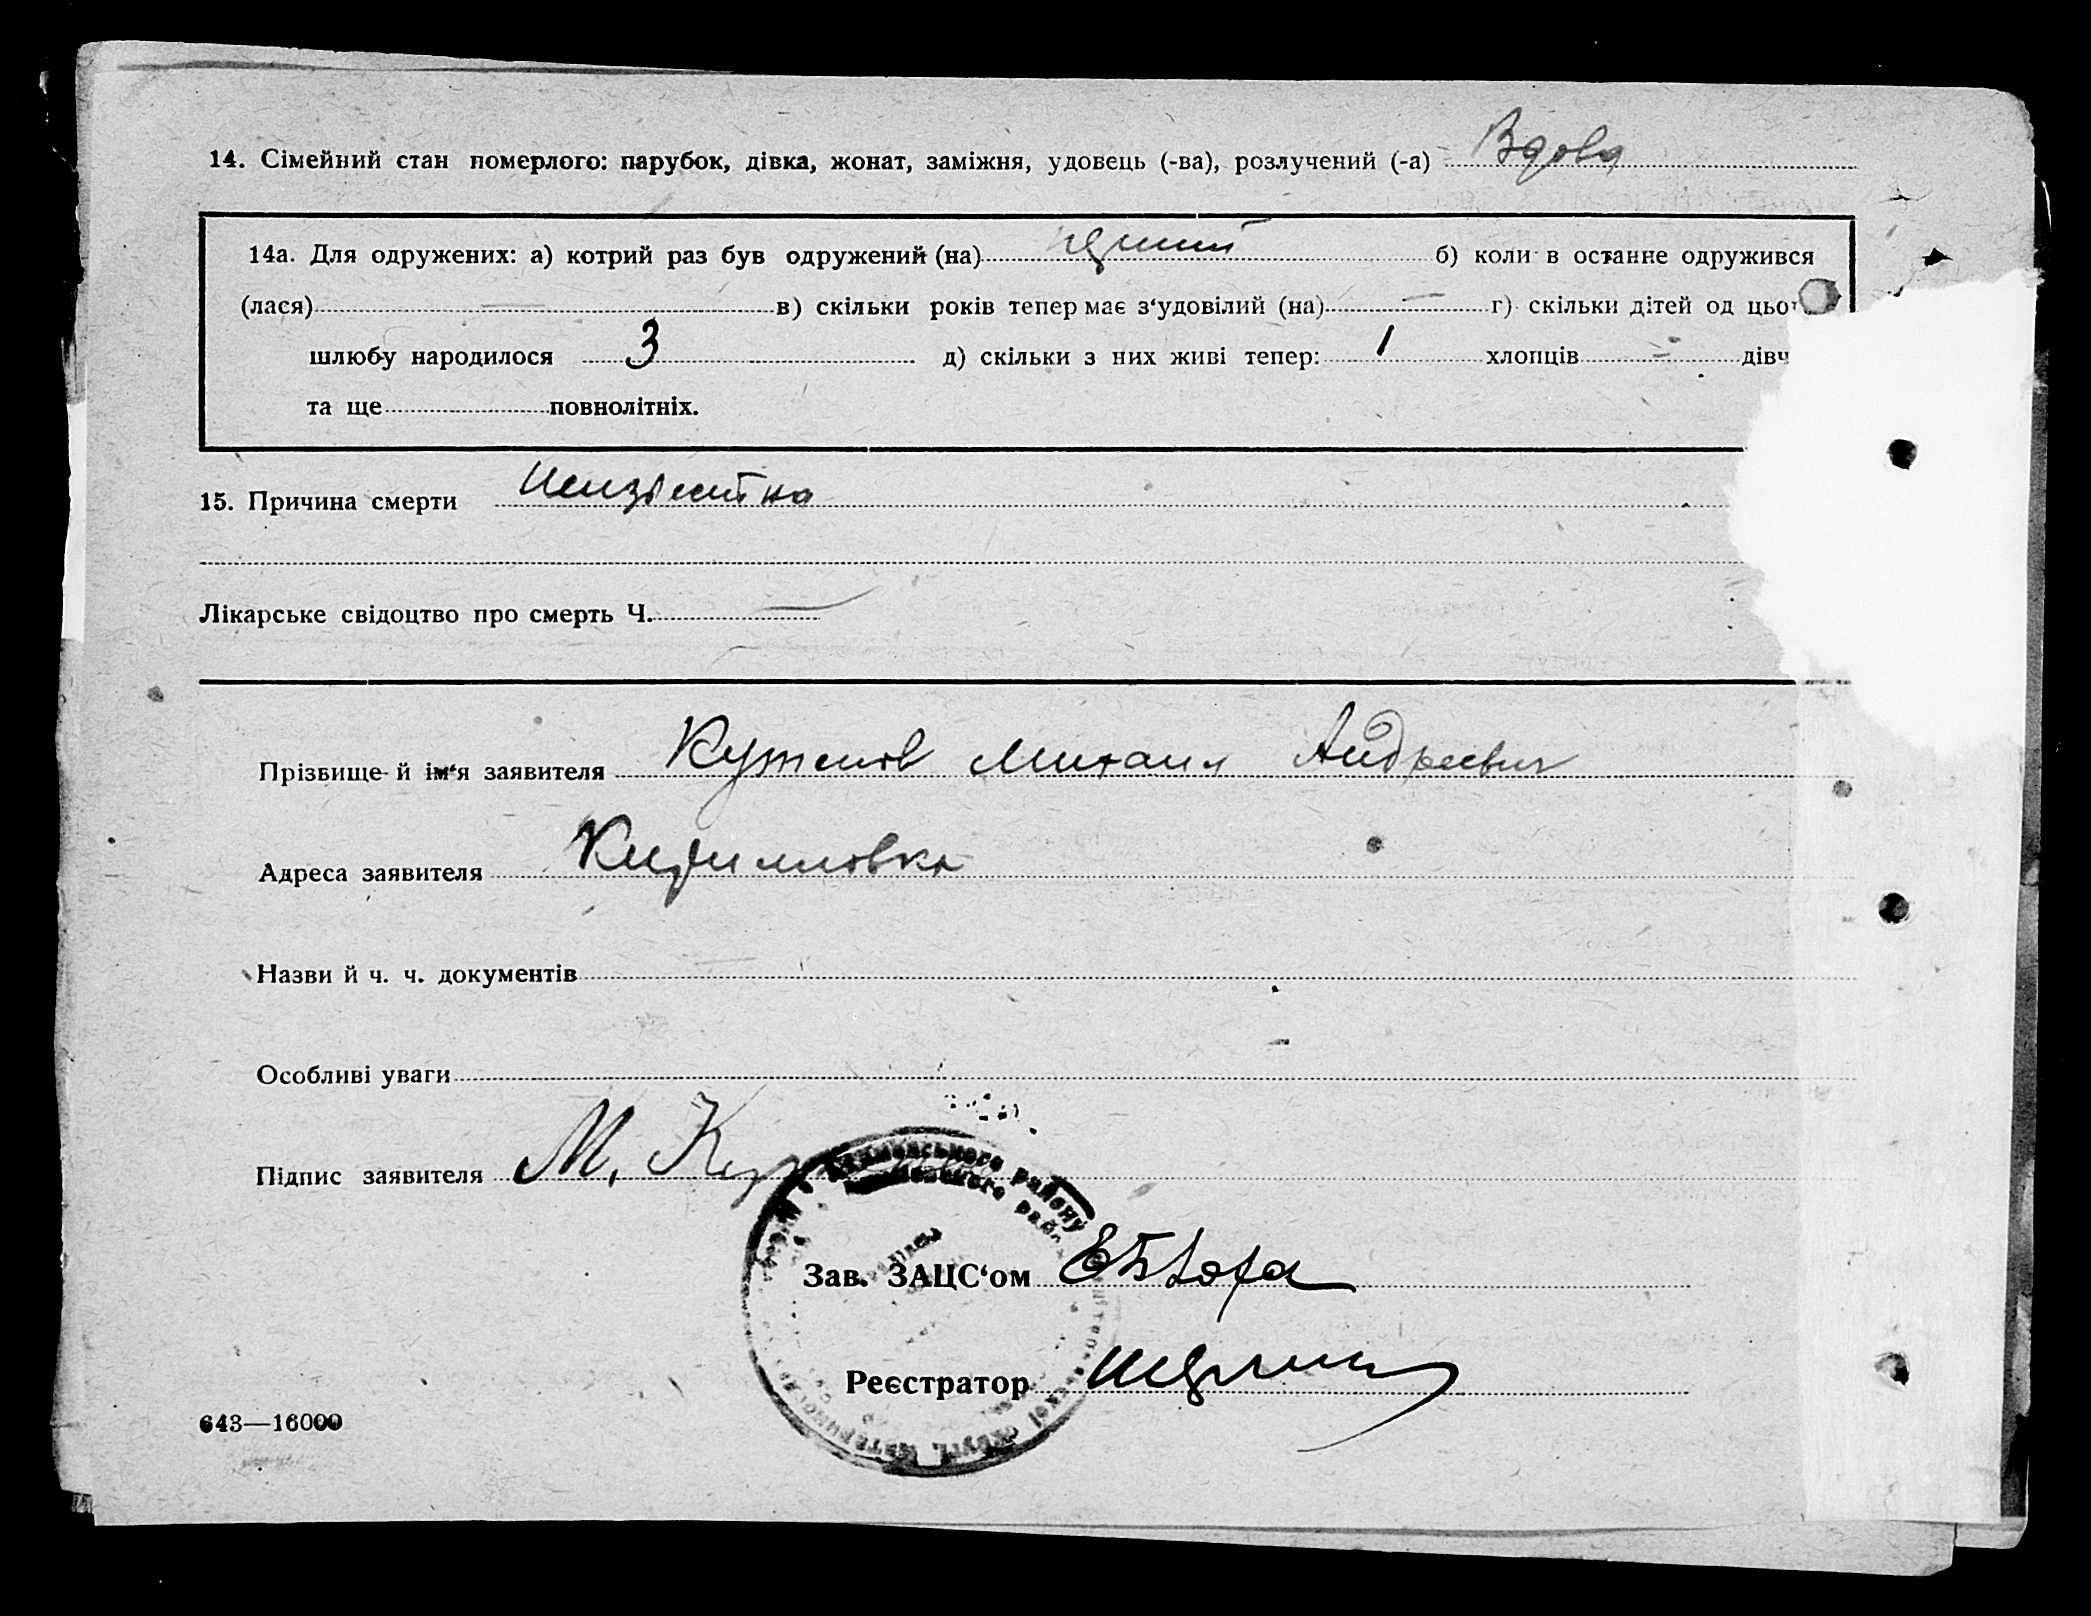 14. Сімейний стан померлого: парубок, дівка, жонат, заміжня, удовець (-ва), розлучений (-а) Вдова
14а. Для одружених: а) котрий раз був одружений (на) б) коли в останне одружився
(лася) — в) скільки років тепер має з‘удовілий (на) — г) скільки дітей од цьо
шлюбу народилося 3 д) скільки з них живі тепер: 1 хлопців — дівч
та ще повнолітніх.
15. Причина смерти
Лікарське свідоцтво про смерть Ч. —
Прізвище й ім‘я заявителя Михаил Андреевич
Адреса заявителя Кирилловка
Назви й ч. ч. документів
Особливі уваги
Підпис заявителя М.
району
Зав. ЗАЦС‘ом
Реєстратор
643—16000